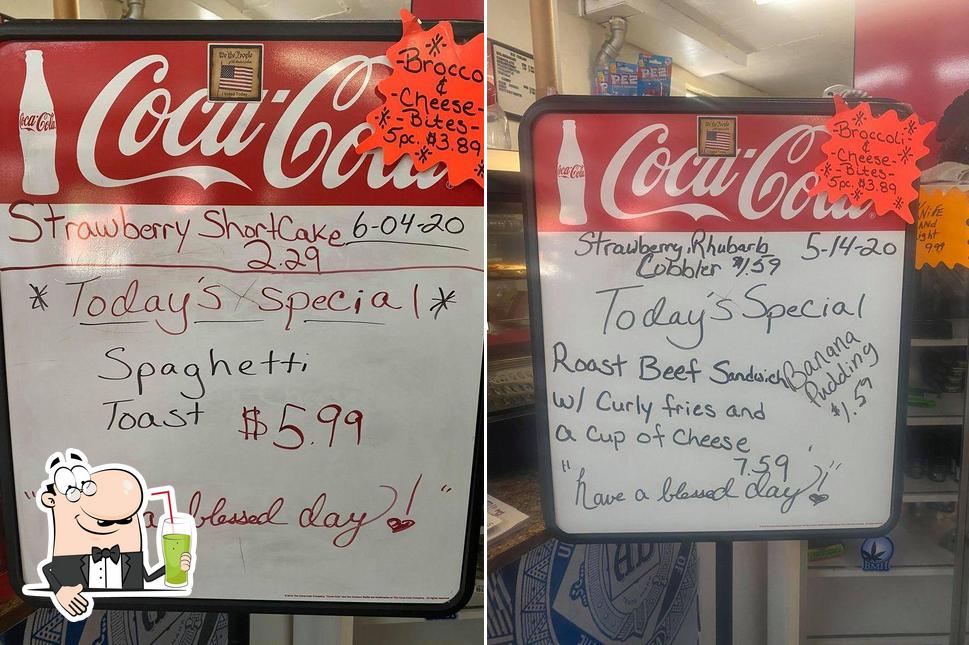 We the People
I Voted Today
Coca-Cola
Coca-Co
-Brocco
&
-Cheese-
-Bites-
5pc. $3.89
Strawberry ShortCake 6-04-20
2.29
* Today's Special *
Spaghetti
Toast $5.99
" a blessed day! "
PEZ PEZ
We the People
Coca-Cola
Coca-Cola
-Broccoli
&
-Cheese-
-Bites-
5pc. $3.89
KNiFE
AND
ight
9.99
Strawberry, Rhubarb 5-14-20
Cobbler $1.59
Today's Special
Roast Beef Sandwich
w/ Curly fries and
a Cup of Cheese
7.59
Banana
Pudding
$1.59
"have a blessed day!"
BMH